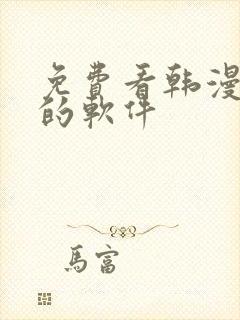 免費看韩漫
的軟件
馬富